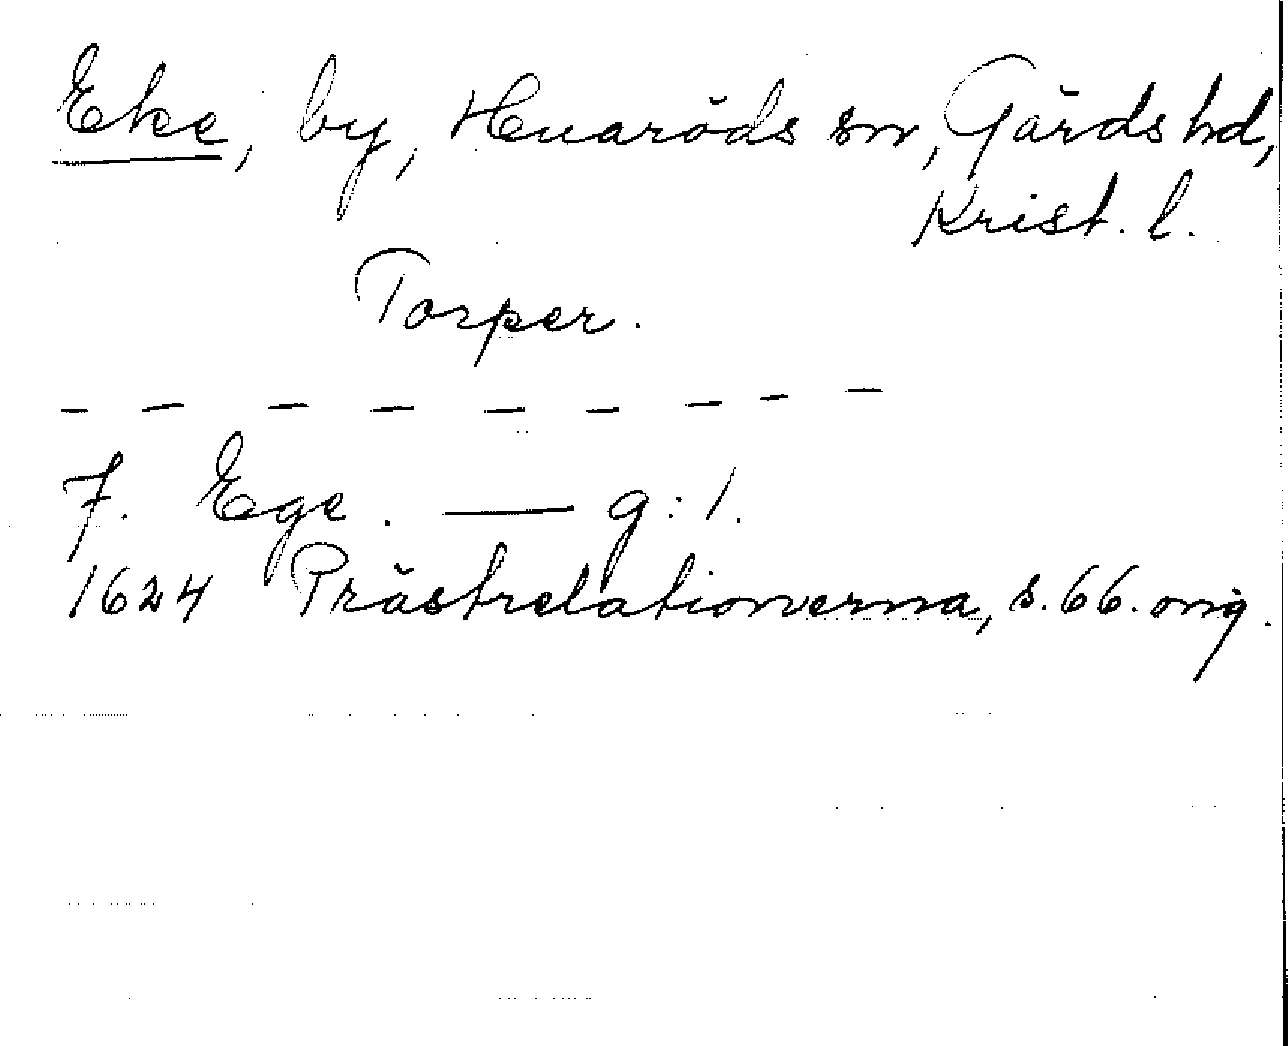 Eke, by, Huaröds sn, Gärds hd,
Krist. l.
Torper.
— — — — — — — — —
7. Ege. — g: 1.
1624 Prästrelationerna, s. 66. orig.